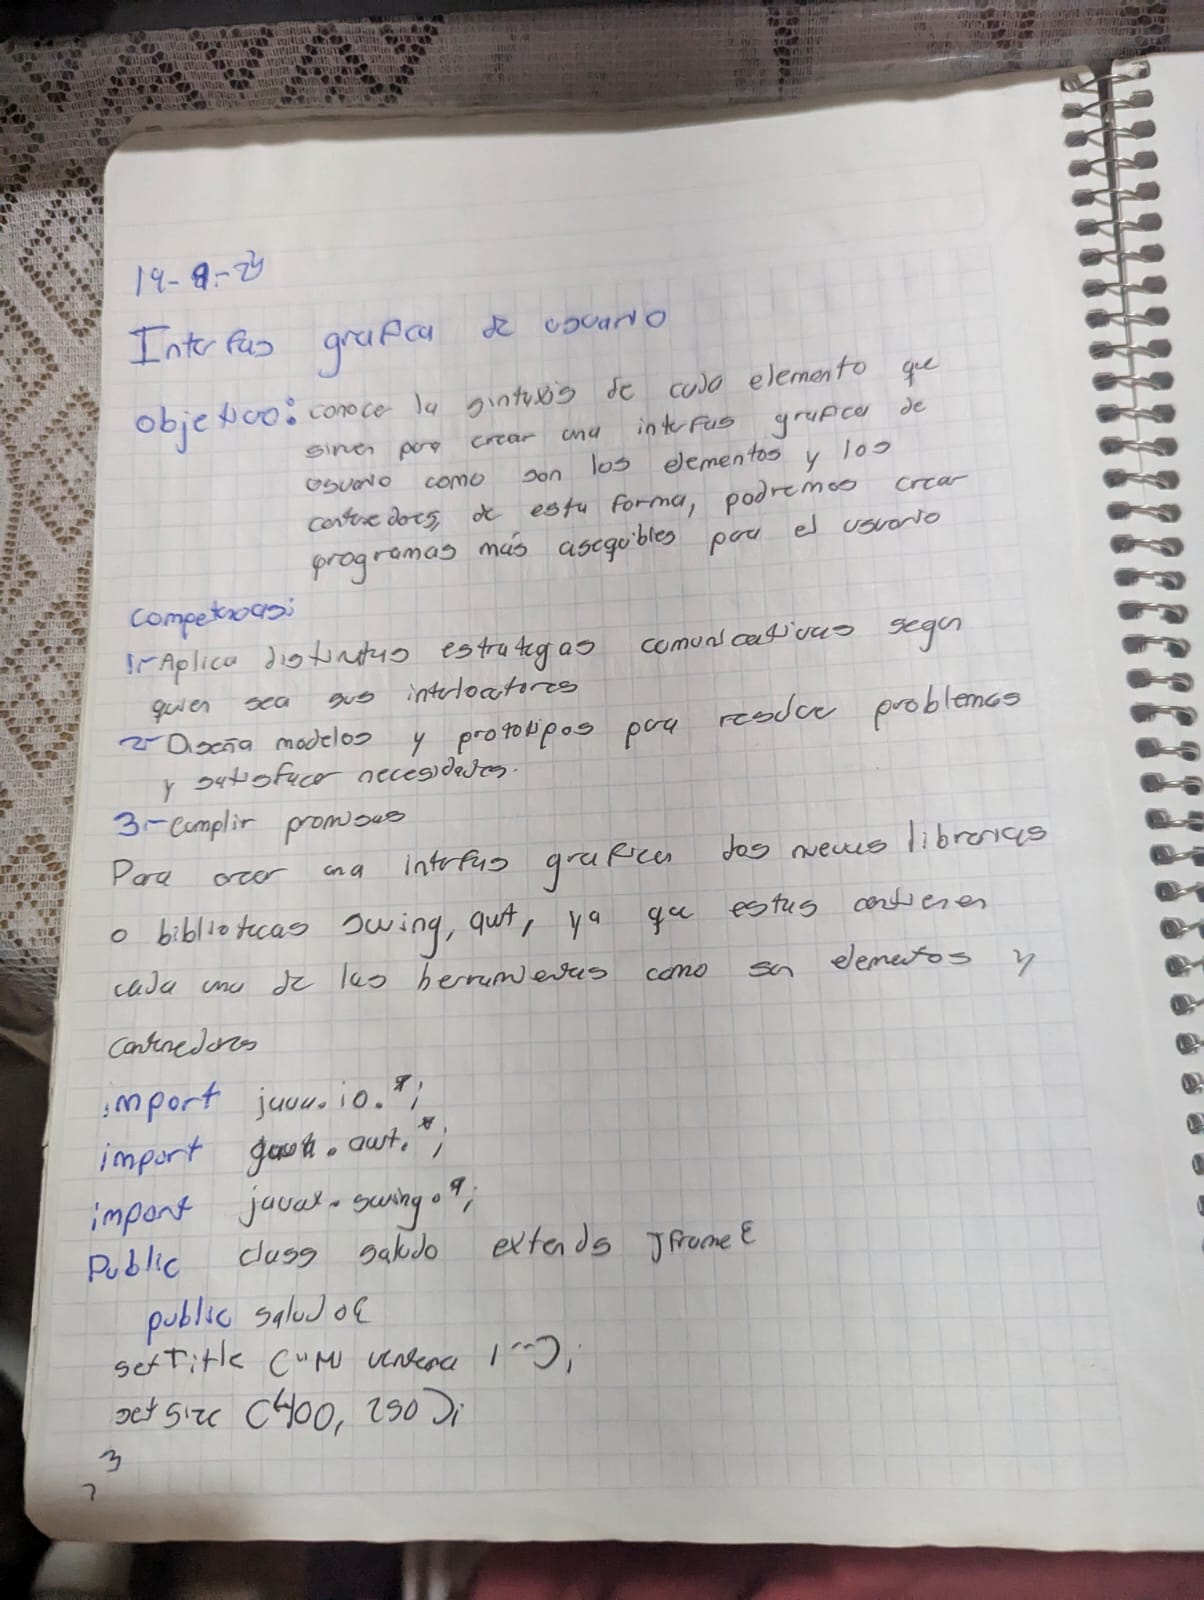 19-8-24
Interfas grafica de usuario
objetivo: conoce la sintaxis de cada elemento que
sirven para crear una interfas grafica de
usuario como son los elementos y los
contenedores, de esta forma, podremos crear
programas más asequibles para el usuario
Competencias:
1-Aplica distintas estrategas comunicativas segun
quien sea sus interlocutores
2-Diseña modelos y prototipos para resolver problemas
y satisfacer necesidades.
3-Cumplir promisas
Para crear una interfas grafica dos nuevas librerias
o bibliotecas swing, awt, ya que estas contienen
cada una de las herramientas como son elementos y
contenedores
import java.io.*;
import java.awt.*;
import javax.swing.*;
Public class saludo extends Jframe{
public saludo{
setTitle ("Mi ventana 1");
setSize (400, 250);
}
}